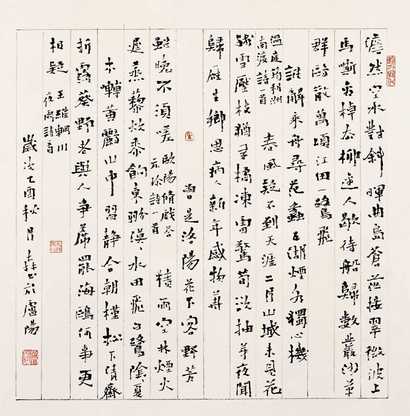 澹然空水對斜暉曲島蒼茫接翠微波上
馬嘶看棹去柳邊人歇待船歸數叢沙草
群鷗散萬頃江田一鷺飛
誰解乘舟尋范蠡五湖煙水獨忘機
溫庭筠利洲
南渡詩一首
春風疑不到天涯二月山城未見花
殘雪壓枝猶有橘凍雷驚筍欲抽芽夜聞
歸雁生鄉思病入新年感物華
曾是洛陽花下客野芳
雖晚不須嗟
歐陽修戲答
元珍詩一首
積雨空林煙火
遲蒸藜炊黍餉東菑漠水田飛白鷺陰夏
木囀黃鸝山中習靜朝槿松下清齋
折露葵野老與人爭席罷海鷗何事更
相疑
王維輞川
詩一首
歲次乙酉秋月書於廬陽